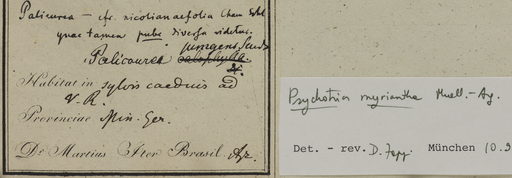 Palicurea — cfr. nicotianaefolia Cham Schl
quae tamen pube diversa videtur.
Palicourea
Habitat in sylvis caeduis ad
V. R.
Provinciae Min. Ger.
Dr. Martius Iter Brasil. Apr.
Psychotria myriantha Muell.-Arg.
Det. - rev. D. Jepp. München 10.9